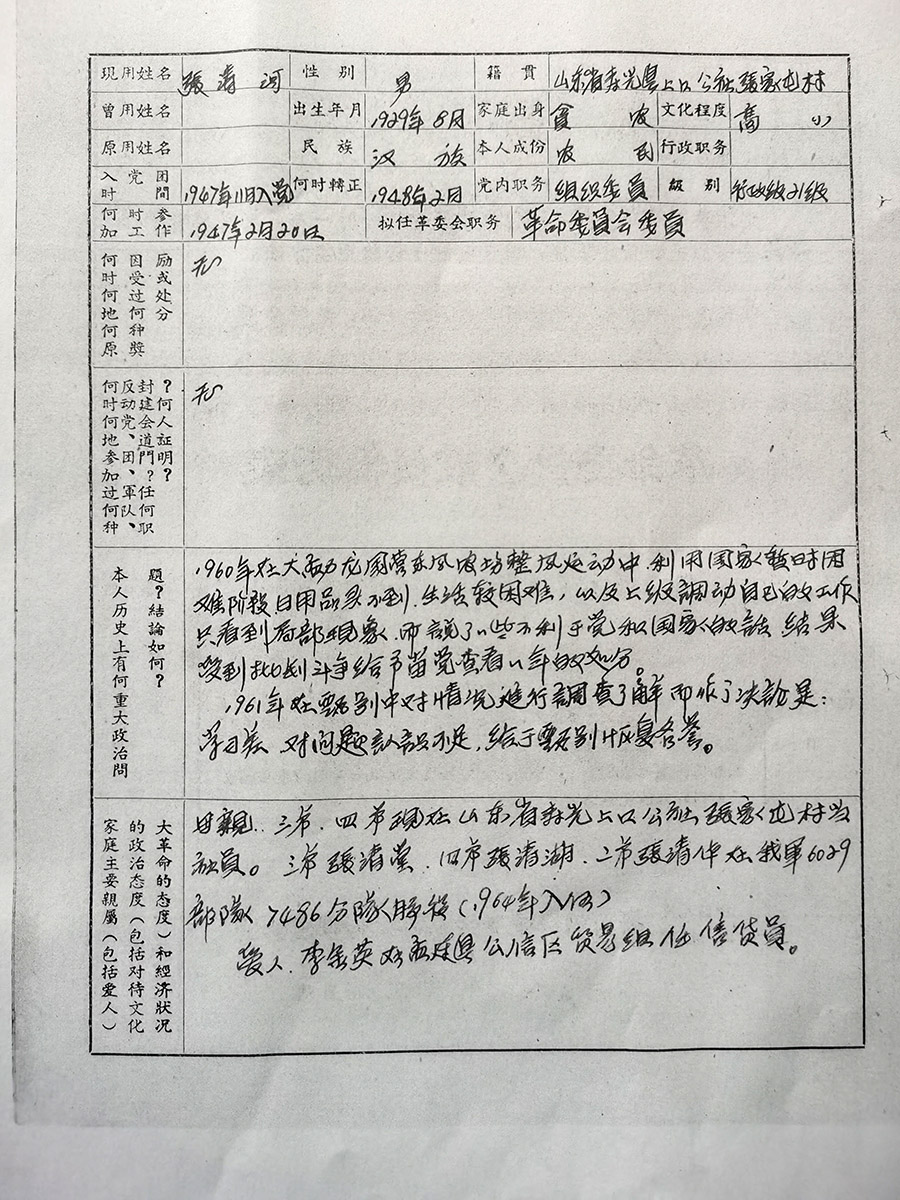 現用姓名 張清河 性别 男 籍貫 山东省寿光县上口公社張家屯村
曾用姓名 出生年月 1929年8月 家庭出身 貧农 文化程度 高小
原用姓名 民族 汉族 本人成份 农民 行政职务
入党团时間 1947年11月入党 何时轉正 1948年2月 党内职务 組织委員 級别 行政级21级
何时参加工作 1947年2月20日 拟任革委会职务 革命委員会委員
何时何地何原因受过何种獎励或处分 无
何时何地参加过何种反动党、团、軍队、封建会道門？任何职？何人証明？ 无
本人历史上有何重大政治問題？結論如何？
1960年在国营东风农场整风运动中利用国家暂时困
难阶段日用品买不到、生活较困难，以及上级調动自己的工作
只看到局部现象、而說了一些不利于党和国家的話 结果
受到批判斗争给予留党查看一年的处分。
1961年在甄别中对情况进行調查了解而作了决議是：
学习差 对问题認識不足，给于甄别恢复名誉。
家庭主要親屬（包括爱人）的政治态度（包括对待文化大革命的态度）和經济狀况
母親、三弟、四弟现在山东省寿光上口公社張家屯村当
社員。三弟張清 四弟張清湖、二弟張清 在我軍6029
部隊7486分隊服役（1964年入伍）
爱人、李 英在 县 区贸易组任信贷員。